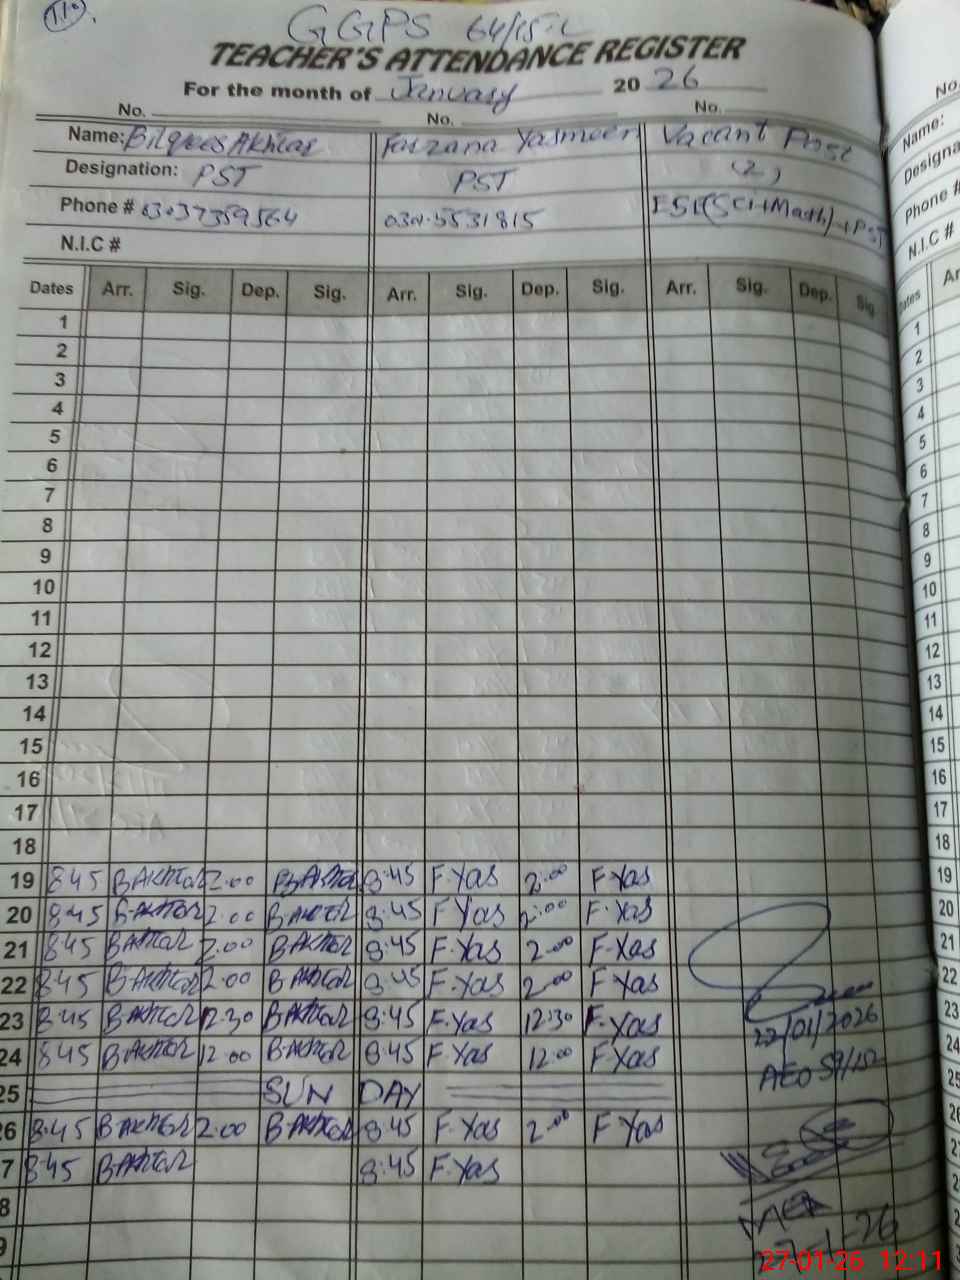 110
GGPS 64/15-L
TEACHER'S ATTENDANCE REGISTER
For the month of January 2026
No. No. No.
Name: Bilquees Akhtar Farzana Yasmeen Vacant Post
Designation: PST PST (2)
Phone # 03037359564 ESE(Sci+Math)+PST
N.I.C #
Dates Arr. Sig. Dep. Sig. Arr. Sig. Dep. Sig. Arr. Sig. Dep. Sig.
1
2
3
4
5
6
7
8
9
10
11
12
13
14
15
16
17
18
19 845 BAkhtar 2.00 BAkhtar 8:45 F.Yas 2:00 F.Yas
20 8:45 BAkhtar 2.00 BAkhtar 8:45 F.Yas 2:00 F.Yas
21 845 BAkhtar 2.00 BAkhtar 8:45 F.Yas 2:00 F.Yas
22 8:45 BAkhtar 2.00 BAkhtar 8:45 F.Yas 2:00 F.Yas
23 8:45 BAkhtar 12.30 BAkhtar 8:45 F.Yas 12:30 F.Yas
24 845 BAkhtar 12.00 BAkhtar 8:45 F.Yas 12:00 F.Yas
22/01/2026
AEO 59/15L
25 SUN DAY
26 8:45 BAkhtar 2.00 BAkhtar 8:45 F.Yas 2:00 F.Yas
7 845 BAkhtar 8:45 F.Yas
8
MEA
9
27-1-26
27-01-26 12:11
No.
Name:
Designa
Phone #
N.I.C #
Dates Ar
1
2
3
4
5
6
7
8
9
10
11
12
13
14
15
16
17
18
19
20
21
22
23
24
25
26